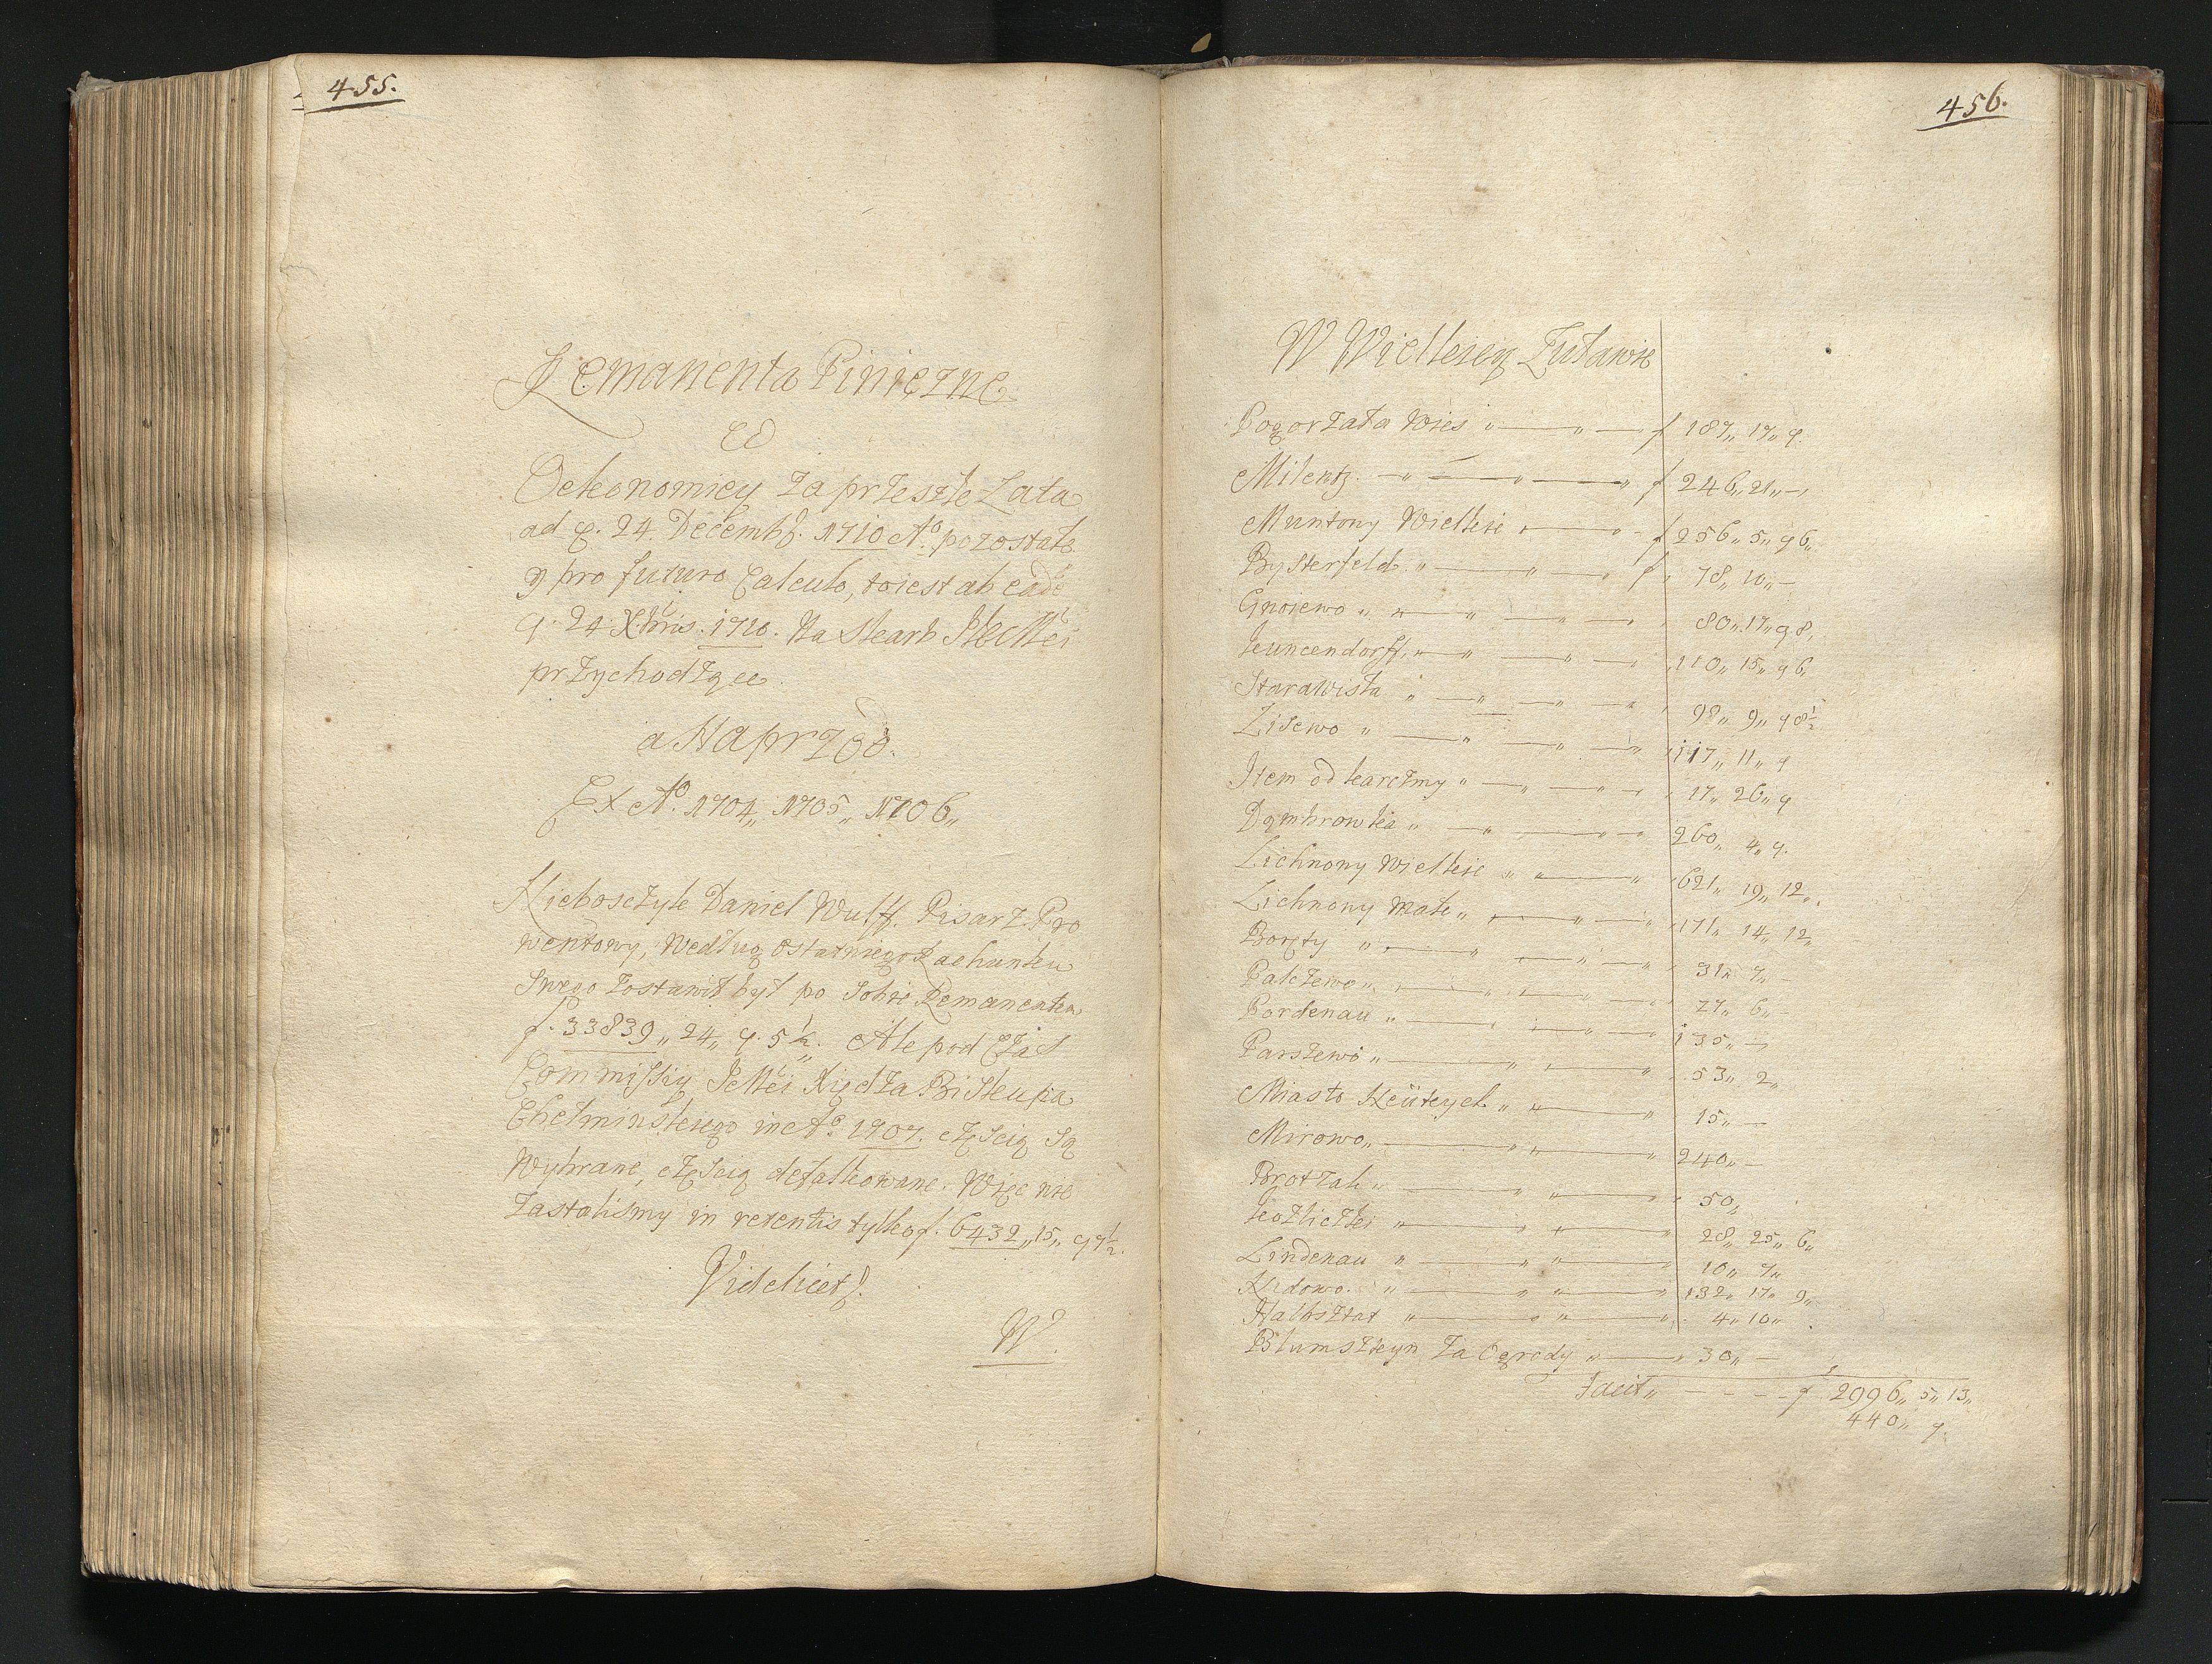 455.
Remanenta Pinięzne
W
Oekonomiey za przeszłe Lata
ad d. 24. Decemb. 1710 Aº. pozostałe
y pro futuro Calculo, toiest ab eadē
d. 24 Xbris. 1710. Na Skarb JKMći
przychodzące.
a Naprzod.
Ex Aº. 1704,, 1705,, 1706,,
Nieboszczyk Daniel Wulff. Pisarz Pro
wentowy, według ostatniego Rachunku
Swego zostawił był po sobie Remanenten
f. 33839,, 24,, q. 5½. Ale pod Czas
Commissiy JeMći Xiędza Biskupa
Chełminskiego in Aº 1707. częścią są
Wybrane, częścią defalkowane. Więc nie
zastaliśmy in retentis tylko f. 6432,, 15,, q 7½.
Videlicet.
W.
456.
W Wielkiey Żuławie
Pogorzała Wies f 187,, 17,, 9.
Milentz. f 246,, 21,, —
Muntony Wielkie f 256,, 5,, q 6,,
Bysterfeld. f 78,, 10,, —
Gnoiewo 80,, 17,, q 8,
Kuncendorff. 110,, 15,, q 6,
Starawisła 98,, 9,, q 8½
Lisewo 117,, 11,, 9
Item od karczmy 17,, 26,, 9
Dąmbrowka 260,, 4,, 9.
Lichnowy Wielkie 621,, 19,, 12,,
Lichnowy Małe 171,, 14,, 12,,
Boręty 31,, 7,, —
Palczewo 27,, 6,, —
Pordenau 135,, —
Parszewo 53,, 2,,
Miasto Neüteych 15,, —
Mirowo 240,, —
Brotzak 50,,
Kozliczki 28,, 25,, 6,,
Lindenau 10,, 7,,
Nidowo 132,, 17,, 9,,
Halbsztat 4,, 10,,
Blumszteyn za Ogrody 30,, —
Facit,, f 2996,, 5,, 13,,
440,, 9.